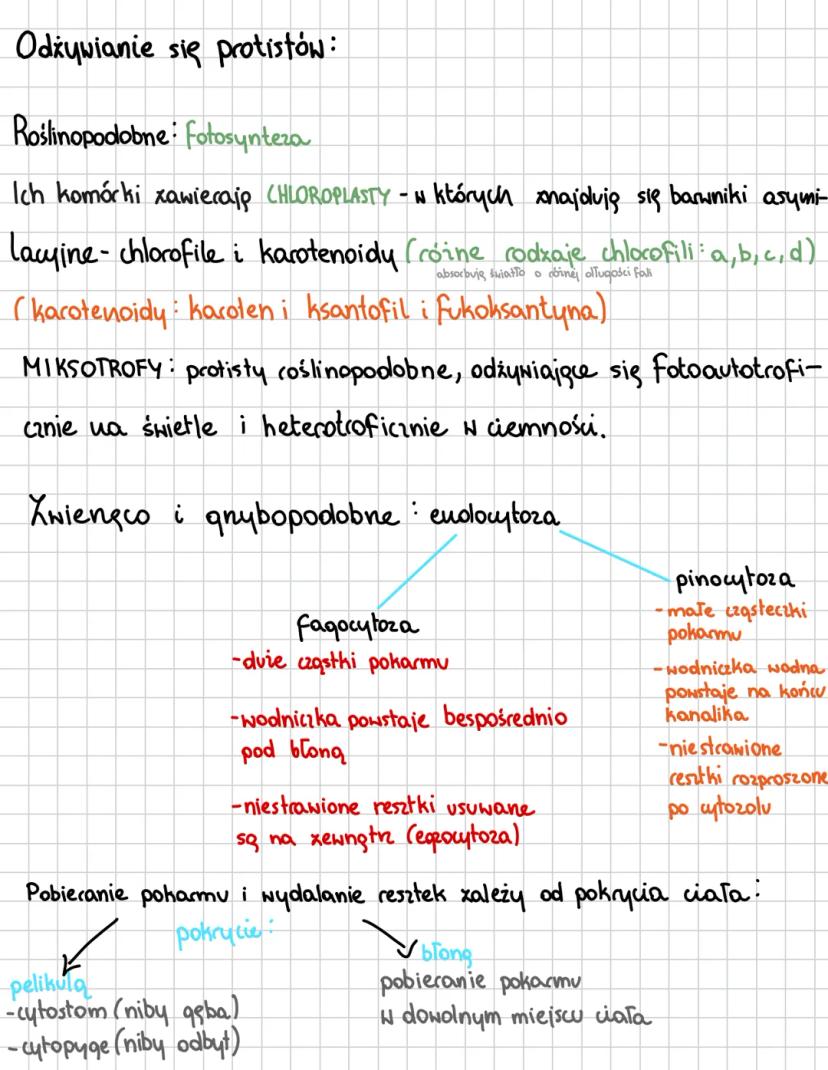 Odżywianie się protistów:
Roślinopodobne: fotosynteza
Ich komórki zawierają CHLOROPLASTY - w których znajdują się barwniki asymi-
lacyjne - chlorofile i karotenoidy (różne rodzaje chlorofili: a, b, c, d)
absorbują światło o różnej długości fali
(karotenoidy: karoten i ksantofil i fukoksantyna)
MIKSOTROFY: protisty roślinopodobne, odżywiające się fotoautotrofi-
cznie na świetle i heterotroficznie w ciemności.
Zwierzęco i grzybopodobne: endocytoza
fagocytoza
-duże cząstki pokarmu
-wodniczka powstaje bespośrednio
pod błoną
-niestrawione resztki usuwane
są na zewnątrz (egzocytoza)
pinocytoza
-małe cząsteczki
pokarmu
-wodniczka wodna
powstaje na końcu
kanalika
-niestrawione
resztki rozproszone
po cytozolu
Pobieranie pokarmu i wydalanie resztek zależy od pokrycia ciała:
pokrycie:
pelikulą
-cytostom (niby gęba)
-cytopyge (niby odbyt)
błoną
pobieranie pokarmu
w dowolnym miejscu ciała